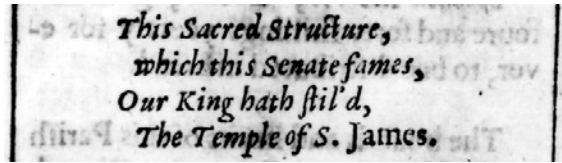 This Sacred Structure,
which this Senate fames,
Our King hath ſtil'd,
The Temple of S. James.